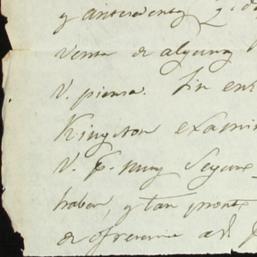 y
venta de alguna
V. piensa. Sin em
Kingston exami
V. E. muy Segur
haber, y tan pront
de ofrecerme a d.